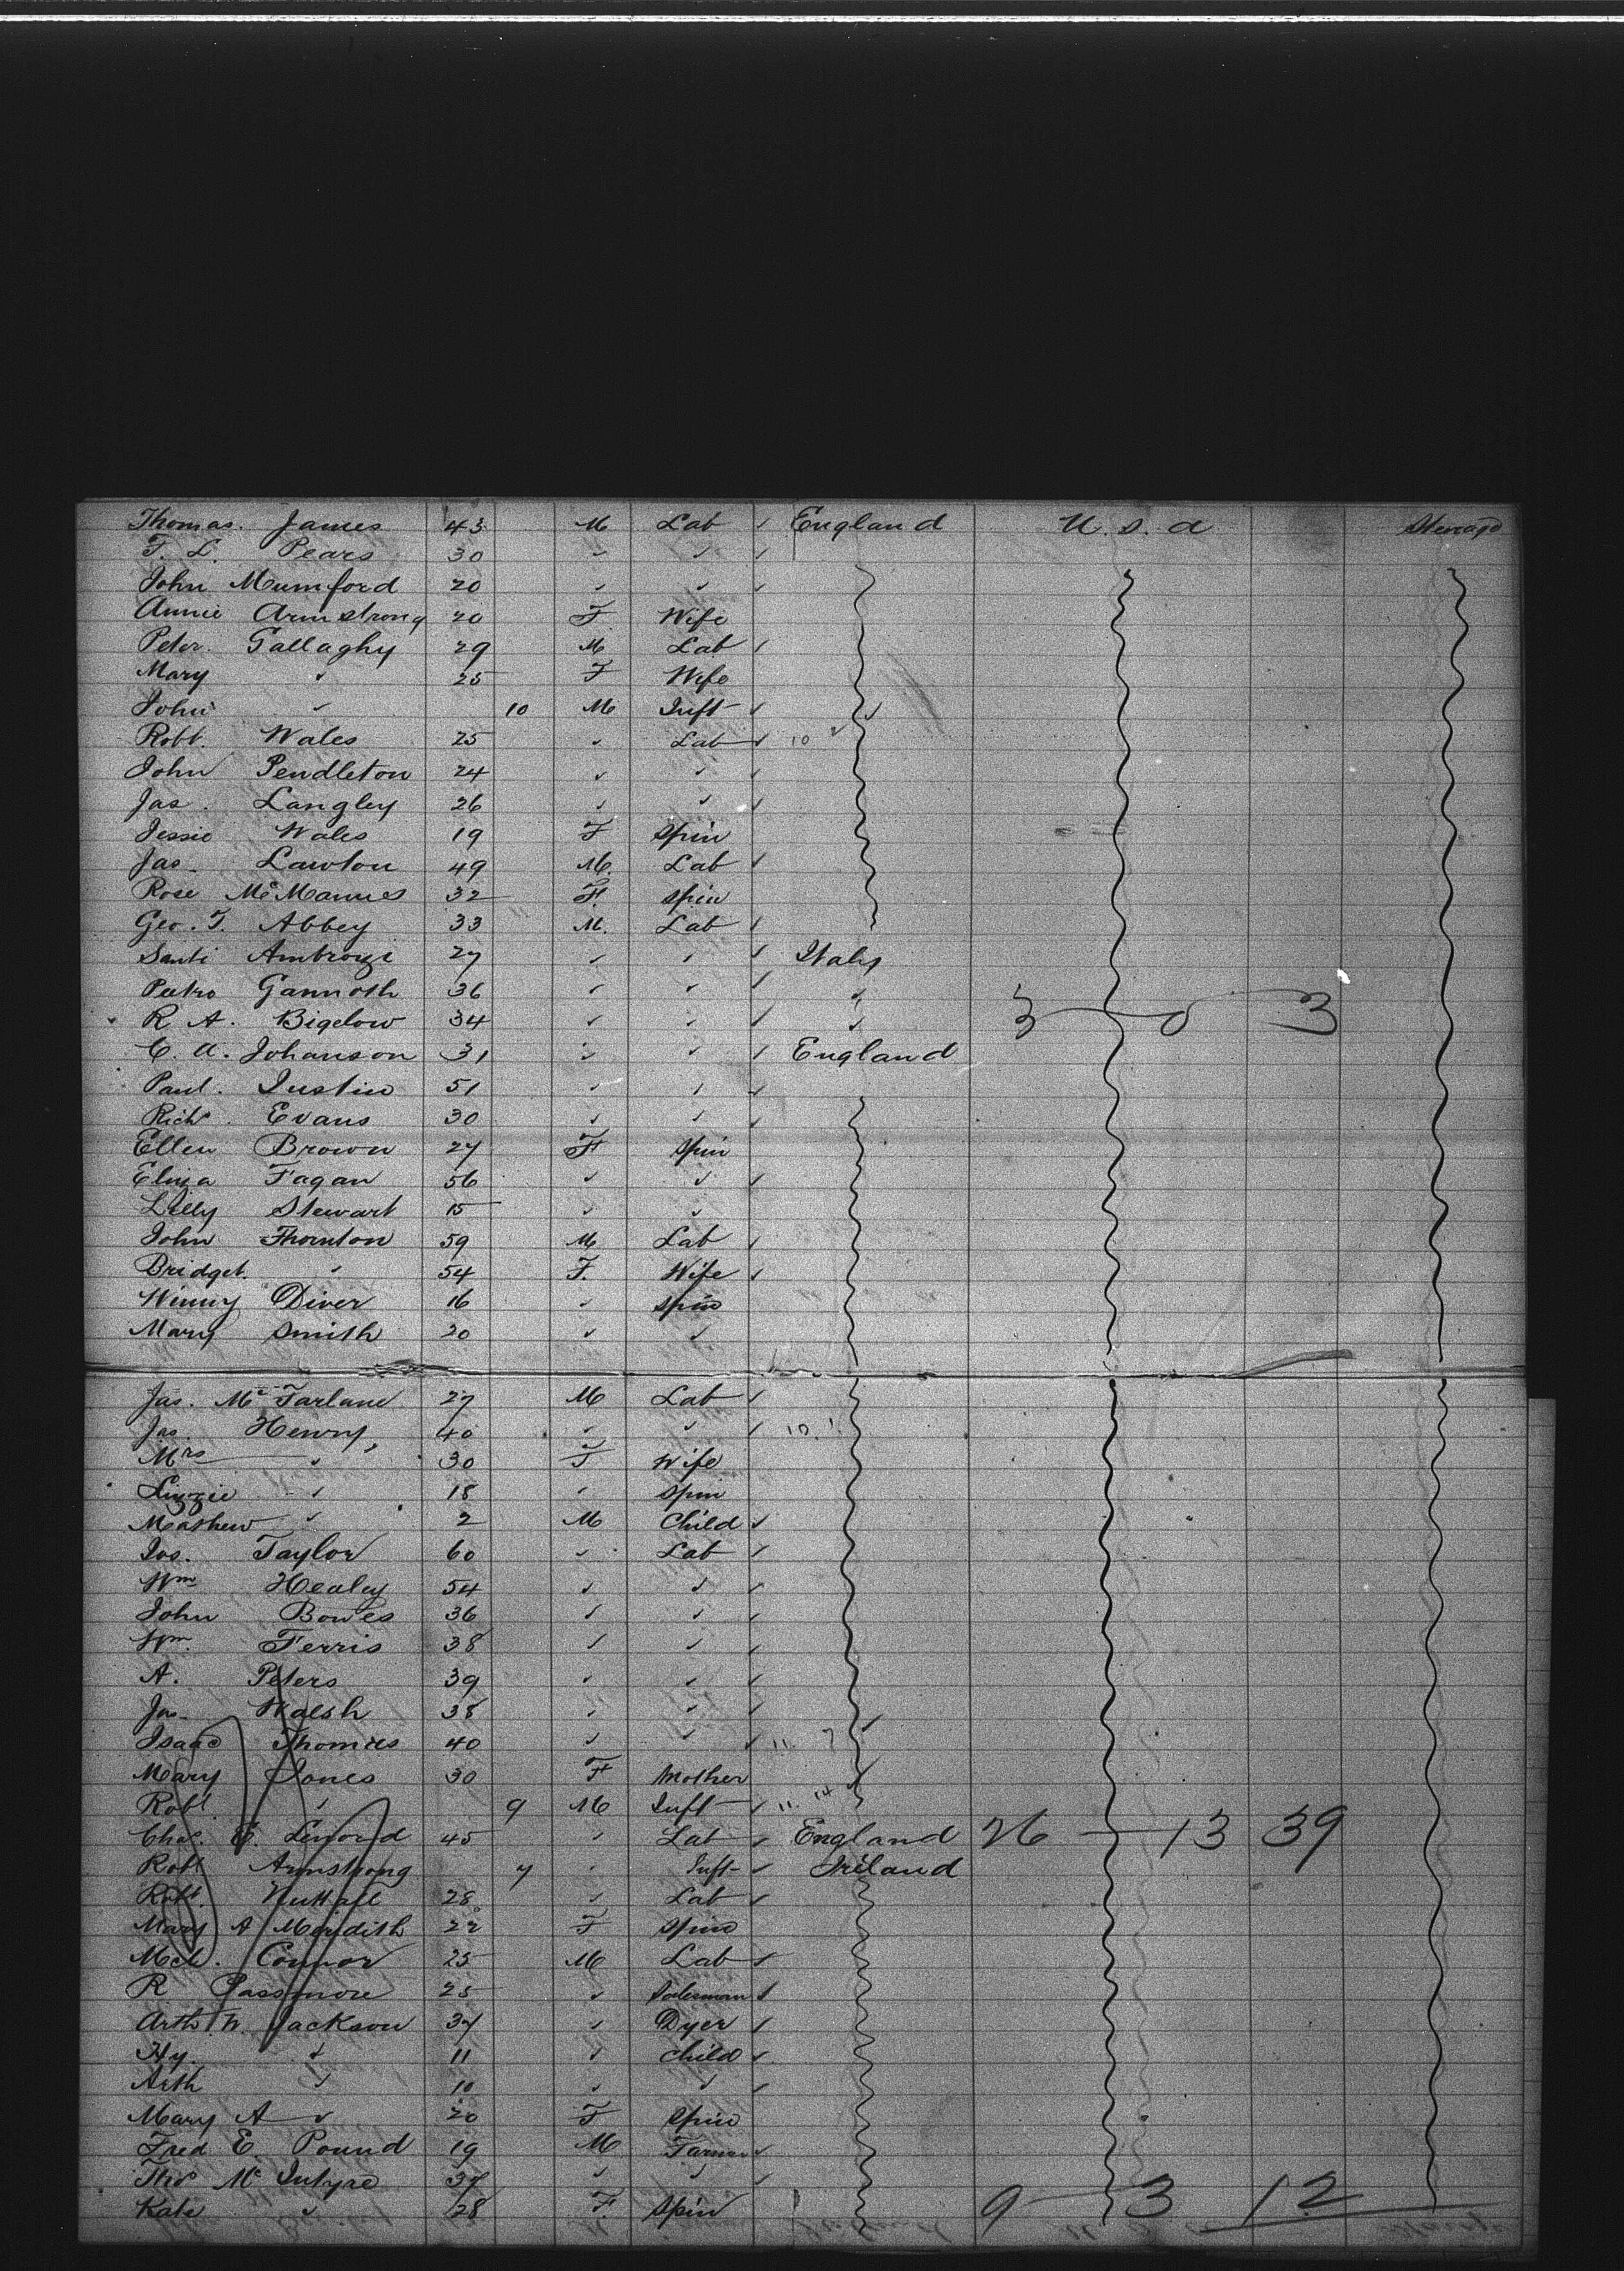 Thomas. James 43 M Lab ✓ England U. S. A Steerage
T. L. Pears 30 ✓ ✓ ✓
John Mumford 20 ✓ ✓ ✓
Annie Armstrong 20 F Wife
Peter. Gallaghy 29 M Lab ✓
Mary ✓ 25 F Wife
John ✓ 10 M Inft ✓ ✓
Robt. Wales 25 ✓ Lab ✓ 10
John Pendleton 24 ✓ ✓ ✓
Jas. Langley 26 ✓ ✓ ✓
Jessie Wales 19 F Spin
Jas. Lawton 49 M. Lab ✓
Rose McManus 32 F. Spin
Geo. T. Abbey 33 M. Lab ✓
Santi 27 ✓ ✓ ✓ Italy
Pietro 36 ✓ ✓ ✓ ✓
R A. Bigelow 34 ✓ ✓ ✓ ✓ 3 — 0 3
C. A. Johanson 31 ✓ ✓ ✓ England
Paul. Justin 51 ✓ ✓ ✓
Richd. Evans 30 ✓ ✓ ✓
Ellen Brown 27 F Spin
Eliza Fagan 56 ✓ ✓ ✓
Lilly Stewart 15 ✓ ✓
John Thornton 59 M Lab ✓
Bridget. ✓ 54 F. Wife ✓
Winny Diver 16 ✓ Spin
Mary Smith 20 ✓ ✓
Jas. McFarlane 27 M Lab ✓
Jas. Henry 40 ✓ ✓ ✓ 10. 1
Mrs ✓ 30 F Wife
Lizzie ✓ 18 ✓ Spin
Mathew ✓ 2 M Child ✓
Jos. Taylor 60 ✓ Lab ✓
Wm Healey 54 ✓ ✓ ✓
John Bowes 36 ✓ ✓ ✓
Wm. Ferris 38 ✓ ✓ ✓
A. Peters 39 ✓ ✓ ✓
Jas. Walsh 38 ✓ ✓ ✓ ✓
Isaac Thomas 40 ✓ ✓ ✓ 11. 7
Mary Jones 30 F Mother ✓
Robt. ✓ 9 M Inft ✓ 11. 14
Chas. E. Lenord 45 ✓ Lab ✓ England 26 — 13 39
Robt Armstrong 7 ✓ Inft ✓ Ireland
Robt. Nuttall 28 ✓ Lab ✓
Mary A Meridith 22 F Spin
Mch. Connor 25 M Lab ✓
R Passmore 25 ✓ Salesman ✓
Arth W. Jackson 37 ✓ Dyer ✓
Hy. ✓ 11 ✓ Child ✓
Arth ✓ 10 ✓ ✓ ✓
Mary A ✓ 20 F Spin
Fred E. Pound 19 M Farmer ✓
Thos McIntyre 37 ✓ ✓ ✓
Kate ✓ 28 F. Spin 9 — 3 12